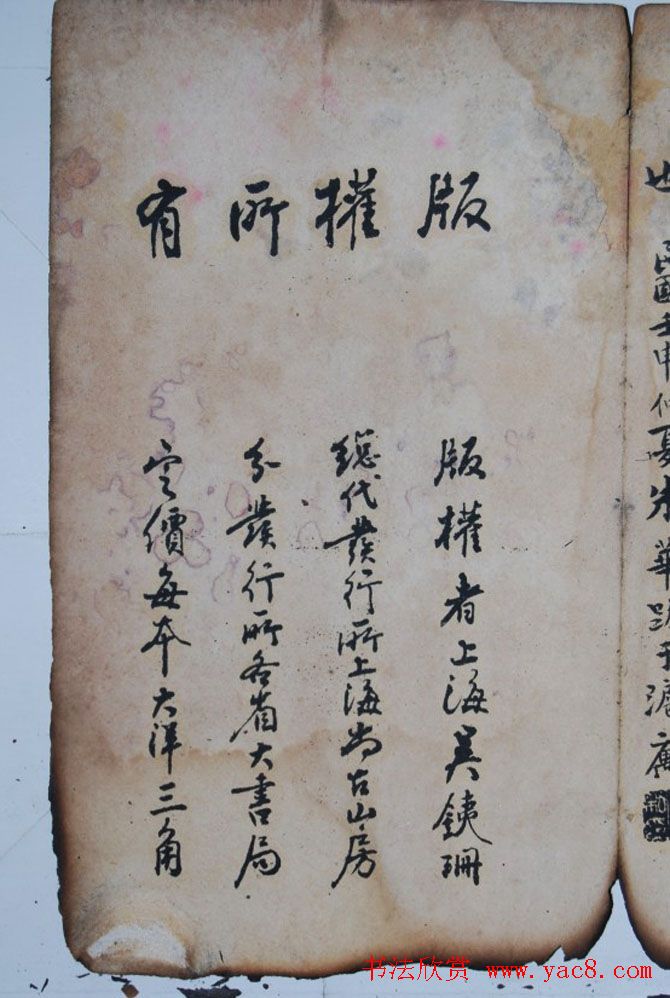 版權所有
版權者上海吳銕珊
總代發行所上海尚古山房
分發行所各省大書局
定價每本大洋三角
民國壬申仲夏朱華跋于滬廬
书法欣赏 www.yac8.com